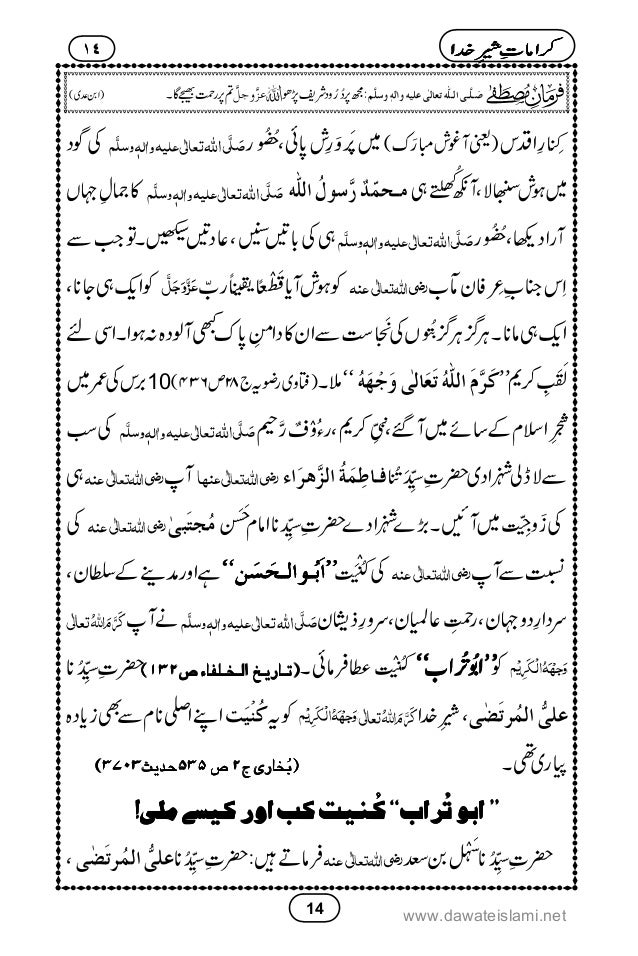 کراماتِ شیرِ خدا
١٤
فرمانِ مصطفےٰ صَلَّی اللہ تعالٰی علیہ والہٖ وسلَّم: مجھ پر دُرُود شریف پڑھو اللہ عَزَّوَجَلَّ تم پر رحمت بھیجے گا۔ (ابن عدی)
کِنارِ اقدس (یعنی آغوش مبارَک) میں پَروَرِش پائی، حُضُور صَلَّی اللہ تعالٰی علیہ والہٖ وسلَّم کی گود
میں ہوش سنبھالا، آنکھ کُھلتے ہی محمّدٌ رَّسولُ اللّٰہ صَلَّی اللہ تعالٰی علیہ والہٖ وسلَّم کا جمالِ جہاں
آرا دیکھا، حُضُور صَلَّی اللہ تعالٰی علیہ والہٖ وسلَّم ہی کی باتیں سنیں، عادتیں سیکھیں۔ تو جب سے
اِس جنابِ عِرفان مآب رضی اللہ تعالٰی عنہ کو ہوش آیا قَطْعًا یقیناً ربّ عَزَّوَجَلَّ کو ایک ہی جانا،
ایک ہی مانا۔ ہرگز ہرگز بُتوں کی نَجاست سے ان کا دامنِ پاک کبھی آلودہ نہ ہوا۔ اسی لئے
لَقَبِ کریم ’’کَرَّمَ اللّٰہُ تَعَالٰی وَجْھَہٗ‘‘ ملا۔ (فتاوی رضویہ ج ۲۸ ص ۴۳۶) 10 برس کی عمر میں
شجرِ اسلام کے سائے میں آ گئے، نبیِّ کریم، رءُوْفٌ رَّحیم صَلَّی اللہ تعالٰی علیہ والہٖ وسلَّم کی سب
سے لاڈلی شہزادی حضرتِ سیِّدَتُنا فاطِمۃُ الزَّھراء رضی اللہ تعالٰی عنہا آپ رضی اللہ تعالٰی عنہ ہی
کی زَوجِیَّت میں آئیں۔ بڑے شہزادے حضرتِ سیِّدُنا امام حَسَن مُجتبیٰ رضی اللہ تعالٰی عنہ کی
نسبت سے آپ رضی اللہ تعالٰی عنہ کی کُنْیَت ’’اَبُو الحَسَن‘‘ ہے اور مدینے کے سلطان،
سردارِ دو جہان، رحمتِ عالمیان، سرورِ ذیشان صَلَّی اللہ تعالٰی علیہ والہٖ وسلَّم نے آپ کَرَّمَ اللہُ تعالٰی
وَجہَہُ الْکَرِیْم کو ’’اَبُو تُراب‘‘ کُنْیَت عطا فرمائی۔ (تاریخ الخلفاء ص ۱۳۲) حضرتِ سیِّدُ نا
علیُّ المُرتَضٰی، شیرِ خدا کَرَّمَ اللہُ تعالٰی وَجہَہُ الْکَرِیْم کو یہ کُنْیَت اپنے اصلی نام سے بھی زیادہ
پیاری تھی۔ (بُخاری ج ۲ ص ۵۳۵ حدیث ۳۷۰۳)
’’ابو تُراب‘‘ کُنیت کب اور کیسے ملی!
حضرتِ سیِّدُ نا سَہْل بن سعد رضی اللہ تعالٰی عنہ فرماتے ہیں: حضرتِ سیِّدُ نا علیُّ المُرتَضٰی،
14
www.dawateislami.net